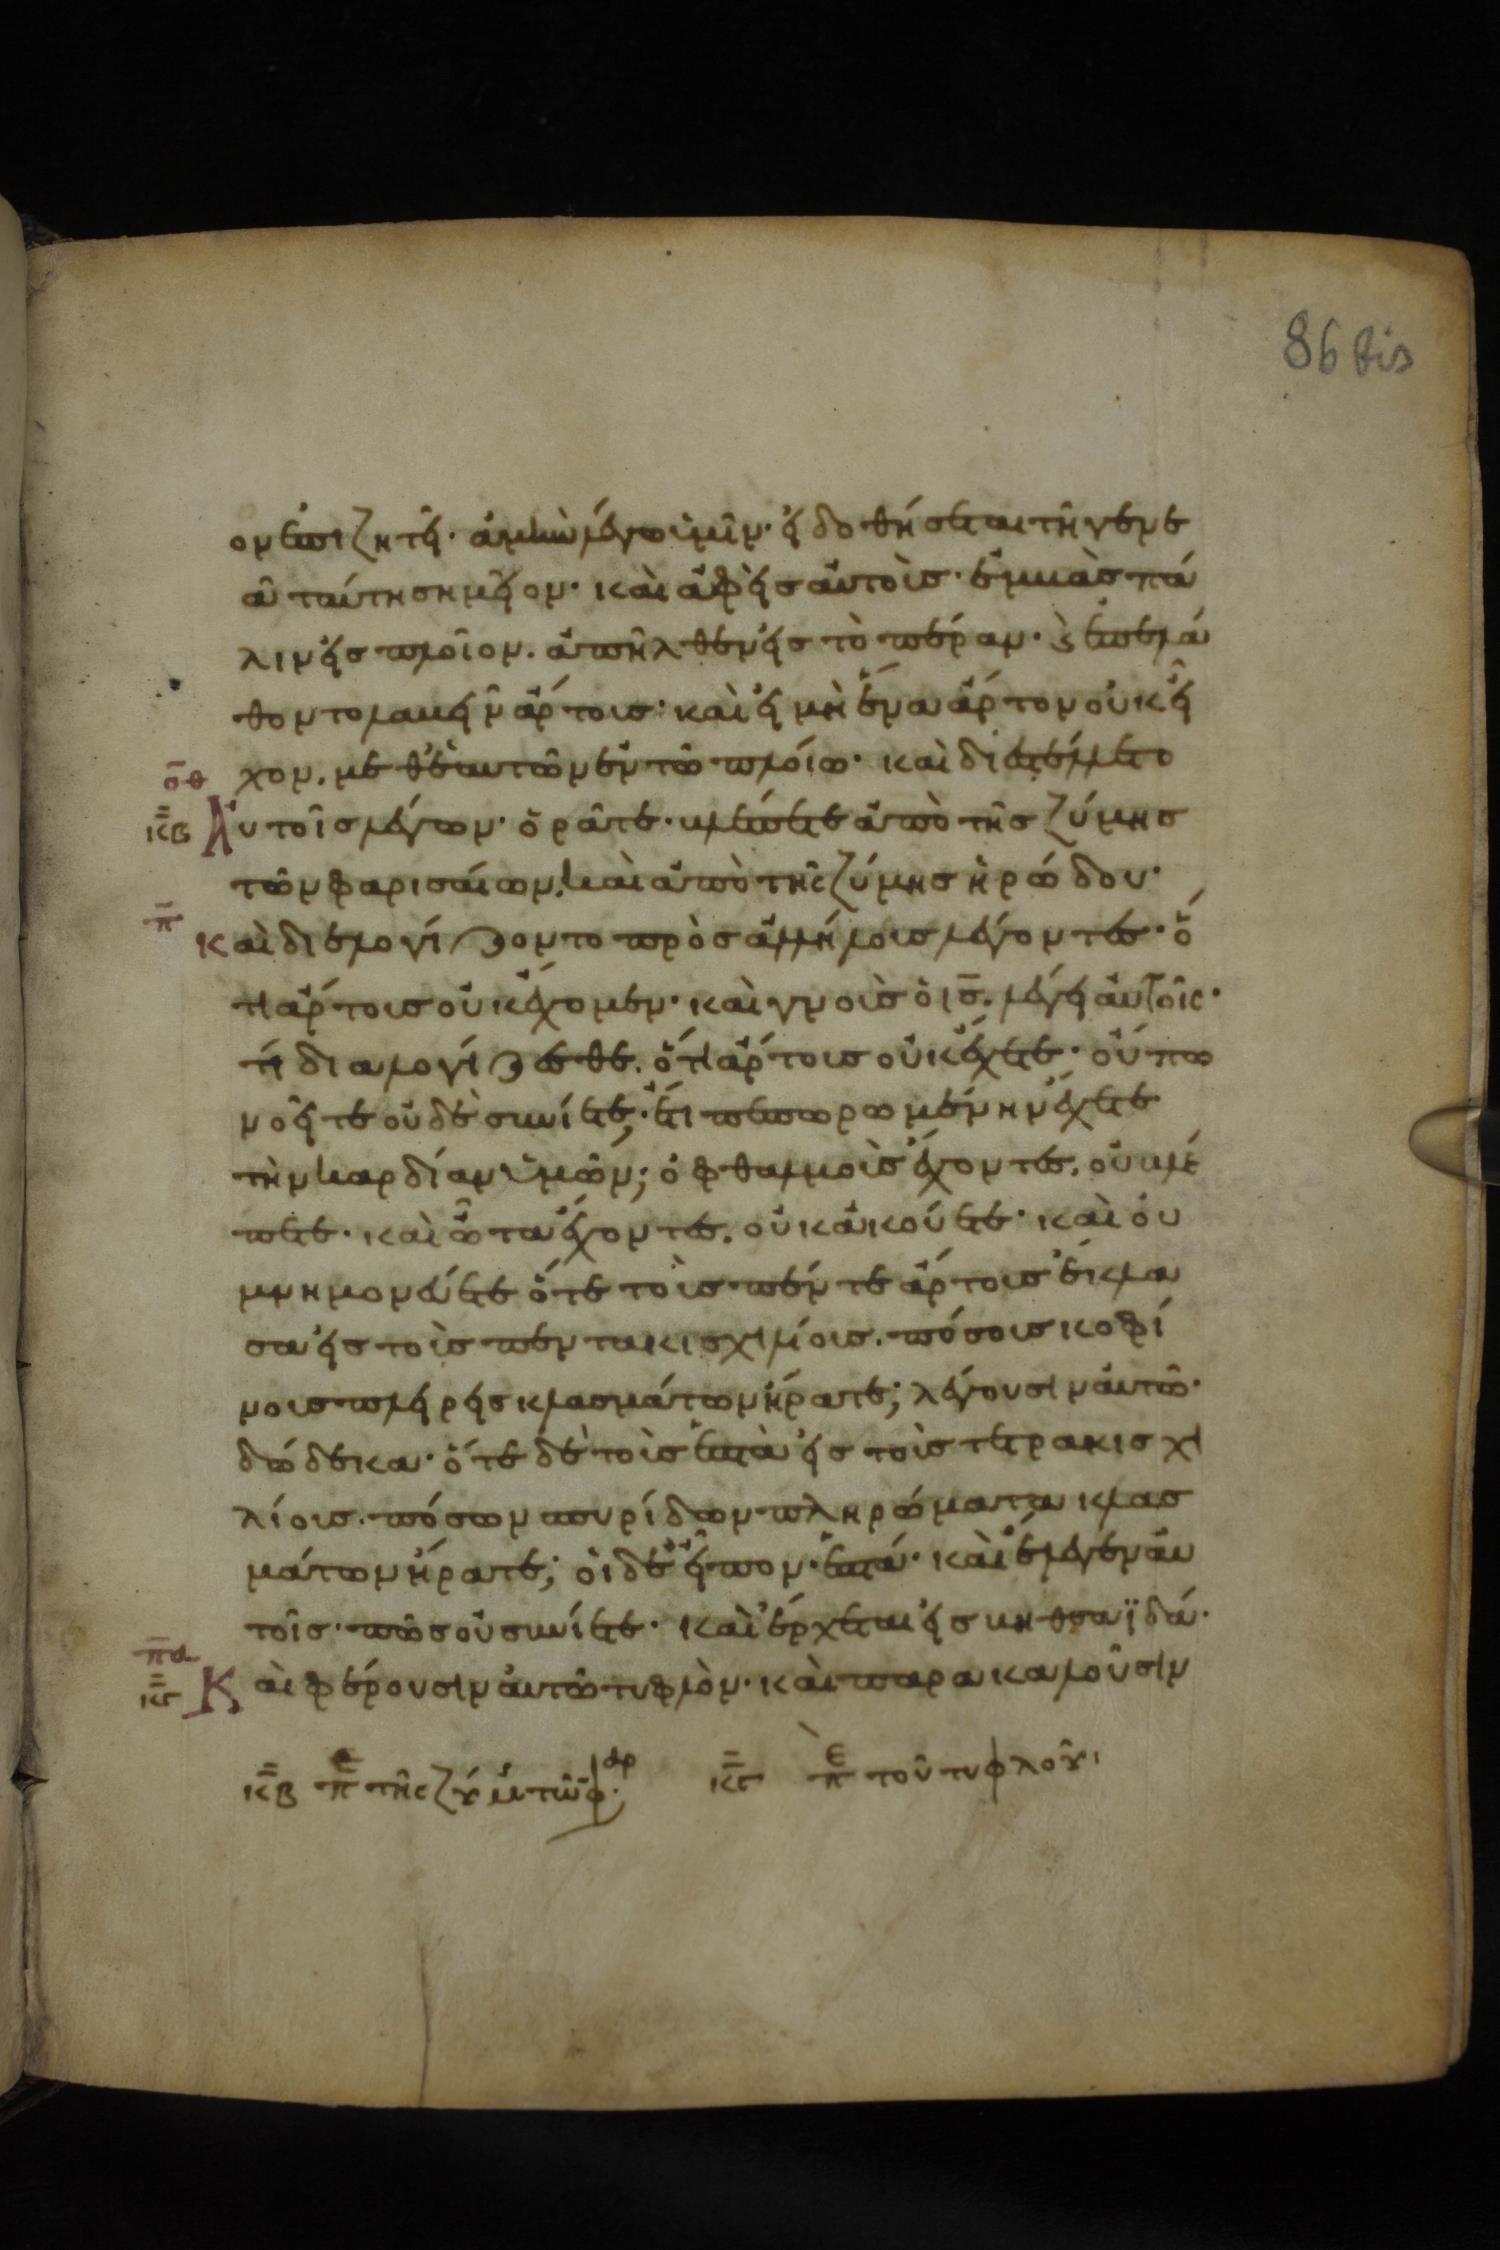 86 bis
ον ἐπιζητεῖ· ἀμὴν λέγω ὑμῖν· εἰ δοθήσεται τῆ γενε
ᾶ ταύτη σημεῖον· καὶ ἀφεὶς αὐτοὺς· ἐμβὰς πά
λιν εἰς πλοῖον. ἀπῆλθεν εἰς τὸ πέραν· ϗ ἐπελά
θοντο λαβεῖν ἄρτους· καὶ εἰ μὴ ἕνα ἄρτον οὐκ εἶ
χον. μεθ' ἑαυτῶν ἐν τῶ πλοίω· καὶ διεστέλλετο
ο̅θ̅
κ̅β̅ Αὐτοῖς λέγων· ὁρᾶτε· βλέπετε ἀπὸ τῆς ζύμης
τῶν φαρισαίων. καὶ ἀπὸ τῆς ζύμης ἡρώδου·
π̅
καὶ διελογίζοντο πρὸς ἀλλήλους λέγοντες· ὅ
τι ἄρτους οὐκ ἔχομεν· καὶ γνοὺς ὁ ι̅ς̅. λέγει αὐτοῖς·
τί διαλογίζεσθε. ὅτι ἄρτους οὐκ ἔχετε· οὔπω
νοεῖτε οὐδὲ συνίετε; ἔτι πεπωρωμένην ἔχετε
τὴν καρδίαν ὑμῶν; ὀφθαλμοὺς ἔχοντες. οὐ βλέ
πετε· καὶ ὦτα ἔχοντες. οὐκ ἀκούετε· καὶ οὐ
μνημονεύετε ὅτε τοὺς πέντε ἄρτους ἔκλα
σα εἰς τοὺς πεντακισχιλίους. πόσους κοφί
νους πλήρεις κλασμάτων ἤρατε; λέγουσιν αὐτῶ·
δώδεκα· ὅτε δὲ τοὺς ἑπτὰ εἰς τοὺς τετρακισχι
λίους. πόσων σπυρίδων πληρώματα κλασ
μάτων ἤρατε; οἱ δὲ εἶπον· ἑπτά· καὶ ἔλεγεν αὐ
τοῖς· πῶς οὐ συνίετε· καὶ ἔρχεται εἰς βηθσαϊδά·
π̅α̅
κ̅γ̅ Καὶ φέρουσιν αὐτῶ τυφλὸν· καὶ παρακαλοῦσιν
κ̅β̅ πε τῆς ζύμ τῶν φαρ κ̅γ̅ πε τοῦ τυφλοῦ